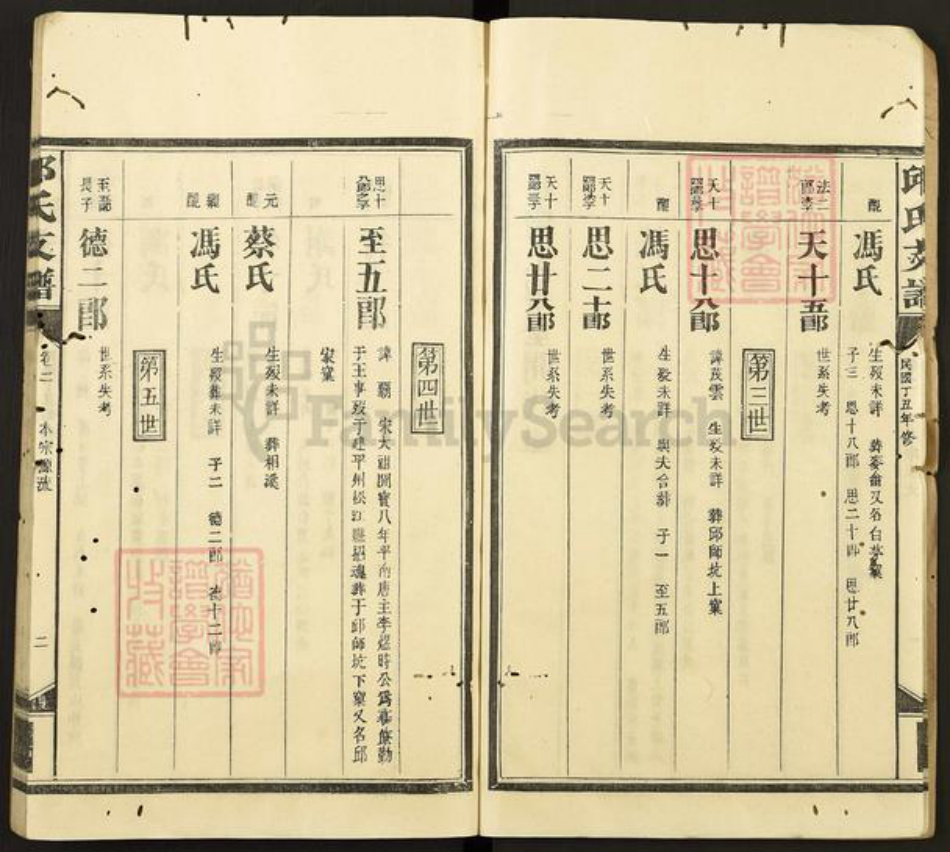 邱氏支譜
民國丁丑年修
配
馮氏
生歿未詳 葬麥畬又名白茅窠
子三 思十八郎 思二十郎 思廿八郎
法二郎
天十五郎
世系失考
第三世
天十
思十八郎
諱茂雲 生歿未詳 葬邱師坑上窠
配
馮氏
生歿未詳 與夫合葬 子一 至五郎
天十
思二十郎
世系失考
天十
思廿八郎
世系失考
第四世
思十
至五郎
諱 宋太祖開寶八年平南唐主李煜時公為 勤
于王事歿于建平州松江 招魂葬于邱師坑下窠又名邱
家窠
元配
蔡氏
生歿未詳 葬相溪
繼配
馮氏
生歿葬未詳 子二 德二郎 德十二郎
第五世
至五郎
長子
德二郎
世系失考
邱氏支譜
卷二 本宗源流
二
FamilySearch
譜學會
收藏